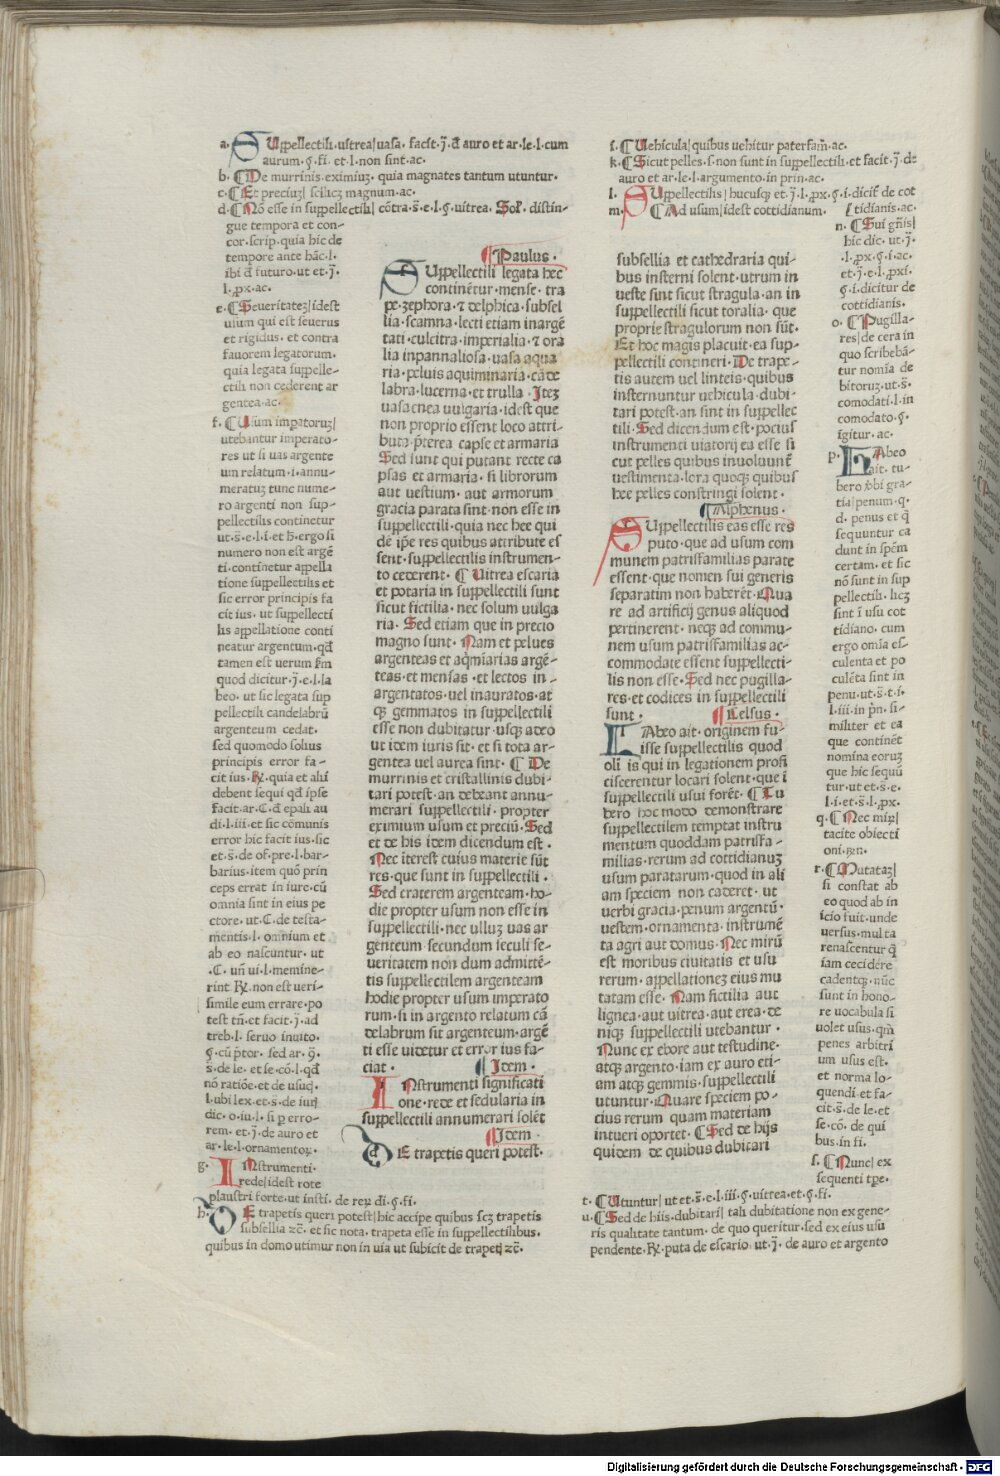 a. SUppellectili·uitrea|uasa. facit.j̄.đ auro et ar·le·l·cum
aurum·ꝯ̄·fi. et·l·non sint·ac.
b. ¶ De murrinis·eximiuz· quia magnates tantum utuntur·
c. ¶ Et preciuz| scilicz magnum·ac·
d. ¶ Nō esse in suppellectili| cōtra·s̄·e·l·ꝯ̄·uitrea. Sol'. distin-
gue tempora et con-
cor·scrip·quia hic de
tempore ante hāc·l·
ibi đ futuro·ut et·j̄·
l·px·ac.
e. ¶ Seueritatez|idest
usum qui est seuerus
et rigidus· et contra
fauorem legatorum·
quia legata suppelle-
ctili non cederent ar
gentea·ac·
f. ¶ Usum impatoruz|
utebantur imperato-
res ut si uas argente
um relatum·i·annu-
meratuz tunc nume-
ro argenti non sup-
pellectilis continetur
ut·s̄·e·l·i·et ħ·ergo si
numero non est argē
ti·continetur appella
tione suppellectilis et
sic error principis fa
cit ius· ut suppellecti
lis appellatione conti
neatur argentum·qđ
tamen est uerum s̄m
quod dicitur·j̄·e·l·la
beo· ut sic legata sup
pellectili candelabrū
argenteum cedat·
sed quomodo solius
principis error fa-
cit ius·R̄·quia et alii
debent sequi qđ ipse
facit·ar·C·đ epali au
di·l·iii·et sic cōmunis
error hic facit ius·sic
et·s̄·de of·pre·l·bar-
barius·item quō prin
ceps errat in iure·cū
omnia sint in eius pe
ctore· ut·C·de testa-
mētis·l· omnium et
ab eo nascuntur· ut
·C· un̄ ui·l·memine-
rint R̄·non est ueri-
simile eum errare·po
test tn̄·et facit·j̄·ad
treb·l· seruo inuito·
ꝯ̄·cū p̄tor· sed ar·ꝯ̄·
s̄·de le· et se·cō·l·qđ
nō ratiōe·et de usuq̄·
l·ubi lex·et·s̄·de iurj
dic·o·iu·l· si p erro-
rem· et·j̄·de auro et
ar·le·l·ornamentoꝝ·
g. INstrumenti·
rede|idest rote
plaustri forte·ut insti. de reꝝ di·ꝯ̄·fi·
h. DE trapetis queri potest|hic accipe quibus scz trapetis
subsellia ꝛc̄· et sic nota· trapeta esse in suppellectilibus·
quibus in domo utimur non in uia ut subicit de trapetꝭ ꝛc̄·
¶ Paulus·
SUppellectili legata hec
continētur·mense· tra
pezephora·⁊ delphica·subsel
lia·scamna·lecti etiam inargē
tati·culcitra·imperialia·⁊ ora
lia inpannaliosa·uasa aqua
ria·peluis aquiminaria·cāde
labra·lucerna·et trulla·Itez
uasa enea uulgaria·idest que
non proprio essent loco attri-
buta·p̄terea capse et armaria
Sed sunt qui putant recte ca
psas et armaria·si librorum
aut uestium· aut armorum
gracia parata sint·non esse in
suppellectili·quia nec hee qui
dē ip̄e res quibus attribute es
sent·suppellectilis instrumen-
to cederent·¶ Uitrea escaria
et potaria in suppellectili sunt
sicut fictilia·nec solum uulga
ria·Sed etiam que in precio
magno sunt·Nam et pelues
argenteas et aq̄mīarias argē-
teas·et mensas·et lectos in-
argentatos·uel inauratos·at
qꝫ gemmatos in suppellectili
esse non dubitatur·usqꝫ adeo
ut idem iuris sit·et si tota ar-
gentea uel aurea sint·¶ De
murrinis et cristallinis dubi-
tari potest·an debeant annu-
merari suppellectili·propter
eximium usum et preciū·Sed
et de his idem dicendum est·
Nec īterest cuius materie sūt
res·que sunt in suppellectili·
Sed craterem argenteam·ho-
die propter usum non esse in
suppellectili·nec ulluz uas ar
genteum·secundum seculi se-
ueritatem non dum admittē-
tis suppellectilem argenteam
hodie propter usum imperato
rum·si in argento relatum cā
delabrum sit argenteum·argē
ti esse uidetur et error ius fa-
ciat·
¶ Idem·
INstrumenti significati
one·rede et sedularia in
suppellectili annumerari solēt
¶ Idem·
DE trapetis queri potest·
i. ¶ Uehicula| quibus uehitur paterfam̄·ac·
k. ¶ Sicut pelles·s·non sunt in suppellectili·et facit·j̄·de
auro et ar·le·l·argumento·in prin·ac·
l. SUppellectilis| hucusqꝫ et·j̄·l·px·ꝯ̄·i·dicit̄ de cot
tidianis·ac·
m. ¶ Ad usum|idest cottidianum·
subsellia et cathedraria qui-
bus insterni solent·utrum in
ueste sunt sicut stragula·an in
suppellectili sicut toralia· que
proprie stragulorum non sūt·
Et hoc magis placuit·ea sup-
pellectili contineri·De trape-
tis autem uel linteis·quibus
insternuntur uehicula·dubi-
tari potest·an sint in suppellec
tili·Sed dicendum est·pocius
instrumenti uiatorij ea esse si
cut pelles quibus inuoluunt̄
uestimenta·lora quoqꝫ quibus
hee pelles constringi solent·
¶ Alphenus·
SUppellectilis eas esse res
puto·que ad usum com
munem patrisfamilias parate
essent·que nomen sui generis
separatim non haberēt·Qua
re ad artificij genus aliquod
pertinerent· neqꝫ ad commu-
nem usum patrisfamilias ac-
commodate essent suppellecti-
lis non esse·Sed nec pugilla-
res·et codices in suppellectili
sunt·
¶ Celsus·
LAbeo ait·originem fu-
isse suppellectilis quod
olī is qui in legationem profi
ciscerentur locari solent·que ī
suppellectili usui forēt·¶ Tu
bero hoc modo demonstrare
suppellectilem temptat instru
mentum quoddam patrisfa-
milias·rerum ad cottidianuz
usum paratarum·quod in ali
am speciem non caderet· ut
uerbi gracia·penum argentū·
uestem·ornamenta·instrumē
ta agri aut domus·Nec mirū
est moribus ciuitatis et usu
rerum· appellationez eius mu
tatam esse·Nam fictilia aut
lignea·aut uitrea·aut erea·de
niqꝫ suppellectili utebantur·
Nunc ex ebore aut testudine·
atqꝫ argento·iam ex auro eti-
am atqꝫ gemmis·suppellectili
utuntur·Quare speciem po-
cius rerum quam materiam
intueri oportet·¶ Sed de hijs
quidem de quibus dubitari
n. ¶ Sui gn̄is|
hic dic· ut·j̄·
·l·px·ꝯ̄·i·ac·
et·j̄·e·l·pxi·
ꝯ̄·i·dicitur de
cottidianis·
o. ¶ Pugilla-
res|de cera in
quo scribebā-
tur nomīa de
bitoruz·ut·s̄·
comodati·l·in
comodato·ꝯ̄·
īgitur·ac·
p. LAbeo
ait· tu-
bero ƥbi gra-
tia|penum·q·
d· penus et q̄
sequuntur ca
dunt in spēm
certam· et sic
nō sunt in sup
pellectili·licz
sint ī usu cot
tidiano· cum
ergo omīa es-
culenta et po
culēta sint in
penu·ut·s̄·t·i·
l·iii·in pn̄·si-
militer et ea
que continēt
nomīna eoruz
que hic sequū
tur·ut et·s̄·e·
l·i·et·s̄·l·px·
q. ¶ Nec mirꝝ|
tacite obiecti
oni·ꝛn̄·
r. ¶ Mutataz|
si constat ab
eo quod ab in
icio fuit·unde
uersus·multa
renascentur q̄
iam cecidere
cadentqꝫ·nūc
sunt in hono-
re uocabula si
uolet usus·qm̄
penes arbitri
um usus est·
et norma lo-
quendi·et fa-
cit·s̄·de le·et
se·cō· de qui
bus·in fi·
s. ¶ Nunc| ex
sequenti tp̄e·
t. ¶ Utuntur| ut et·s̄·e·l·iii·ꝯ̄·uitrea·et·ꝯ̄·fi·
u. ¶ Sed de hiis·dubitari| tali dubitatione non ex gene-
ris qualitate tantum· de quo queritur·sed ex eius usu
pendente·R̄·puta de escario· ut·j̄· de auro et argento
Digitalisierung gefördert durch die Deutsche Forschungsgemeinschaft - DFG